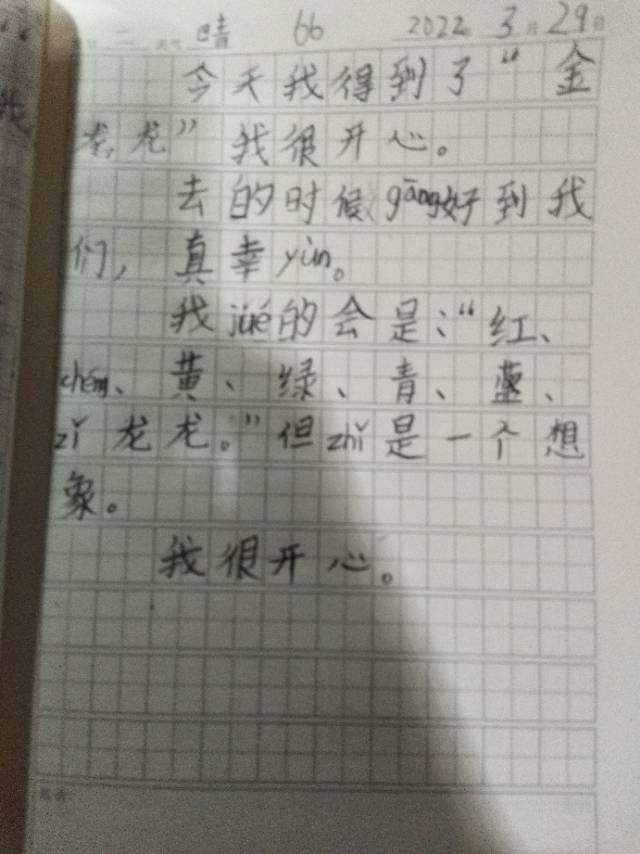 二 天气 晴 66 2022年 3月29日
今天我得到了“金
龙龙”我很开心。
去的时候gāng好到我
们，真幸yùn。
我jué的会是：“红、
chéng、黄、绿、青、蓝、
zǐ龙龙。”但zhǐ是一个想
象。
我很开心。